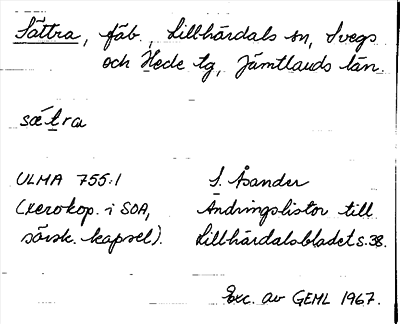 Sättra, fäb., Lillhärdals sn, Svegs
och Hede tg, Jämtlands län.
sǽtra
ULMA 755:1
(xerokop. i SOA,
särsk. kapsel).
S. Åsander
Ändringslistor till
Lillhärdalsbladet s. 38.
Exc. av GEHL 1967.